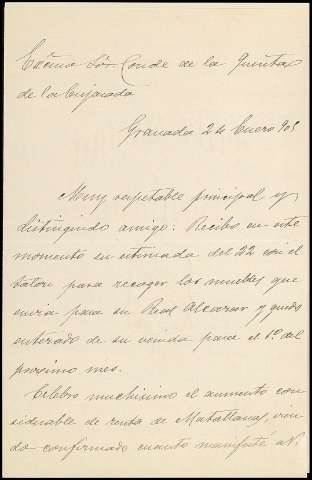 Excmo Sór Conde de la Quinta
de la Enjarada
Granada 24 Enero 905
Muy respetable principal y
distinguido amigo: Recibo en este
momento su estimada del 22 con el
talon para recoger los muebles que
envia para su Real Alcazar y quedo
enterado de su venida para el 1º del
proximo mes.
Celebro muchisimo el aumento con
siderable de renta de Matallana, vien
do confirmado cuanto manifesté a V.